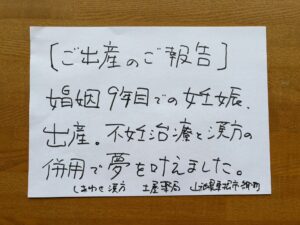 [ご出産のご報告]
婚姻9年目での妊娠、
出産。不妊治療と漢方の
併用で夢を叶えました。
しあわせ漢方 土屋薬局